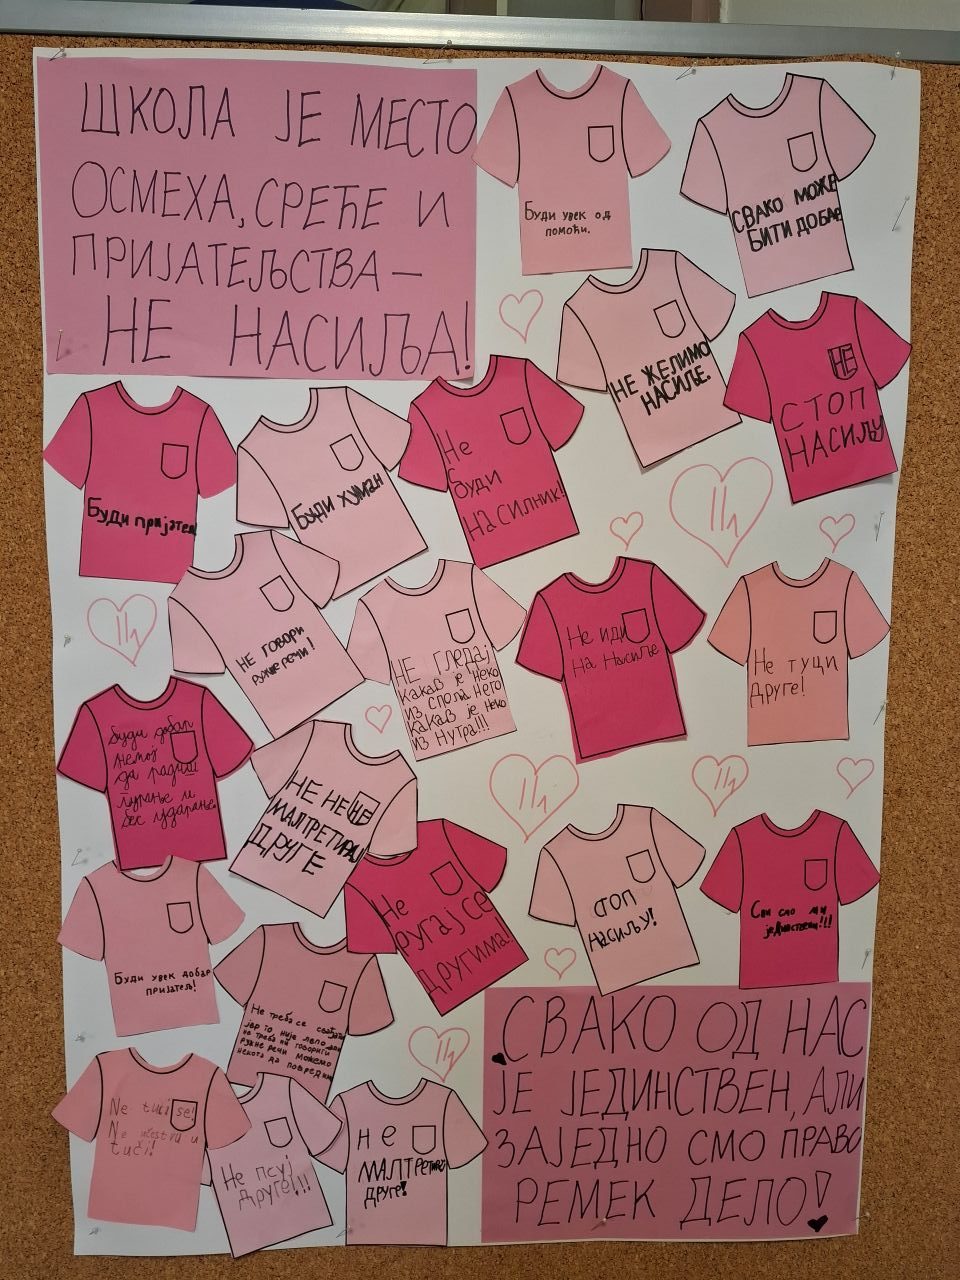 ШКОЛА ЈЕ МЕСТО
ОСМЕХА, СРЕЋЕ И
ПРИЈАТЕЉСТВА –
НЕ НАСИЉА!
Буди увек од
помоћи.
СВАКО МОЖЕ
БИТИ ДОБАР
НЕ ЖЕЛИМО
НАСИЉЕ.
НЕ
СТОП
НАСИЉУ
Буди пријатељ
Буди хуман
Не
буди
насилник!
НЕ ГОВОРИ
РУЖНЕ РЕЧИ!
НЕ гледај
какав је неко
из споља него
какав је неко
из нутра!!!
Не иди
на насиље
Не туци
друге!
буди добар
немој
да радиш
гурање и
бес ударање.
НЕ НЕ НЕ
МАЛТРЕТИРАЈ
ДРУГЕ
Не
ругај се
другима!
СТОП
НАСИЉУ!
Сви смо ми
јединствени!!!
Буди увек добар
пријатељ!
Не треба се свађати
јер то није лепо
не треба ни говорити
ружне речи можемо
некога да повредимо
Ne tuci se!
Ne učestvuj u
tuči!
Не псуј
друге!!!
не
МАЛТРЕТИРАЈ
друге!
СВАКО ОД НАС
ЈЕ ЈЕДИНСТВЕН, АЛИ
ЗАЈЕДНО СМО ПРАВО
РЕМЕК ДЕЛО!